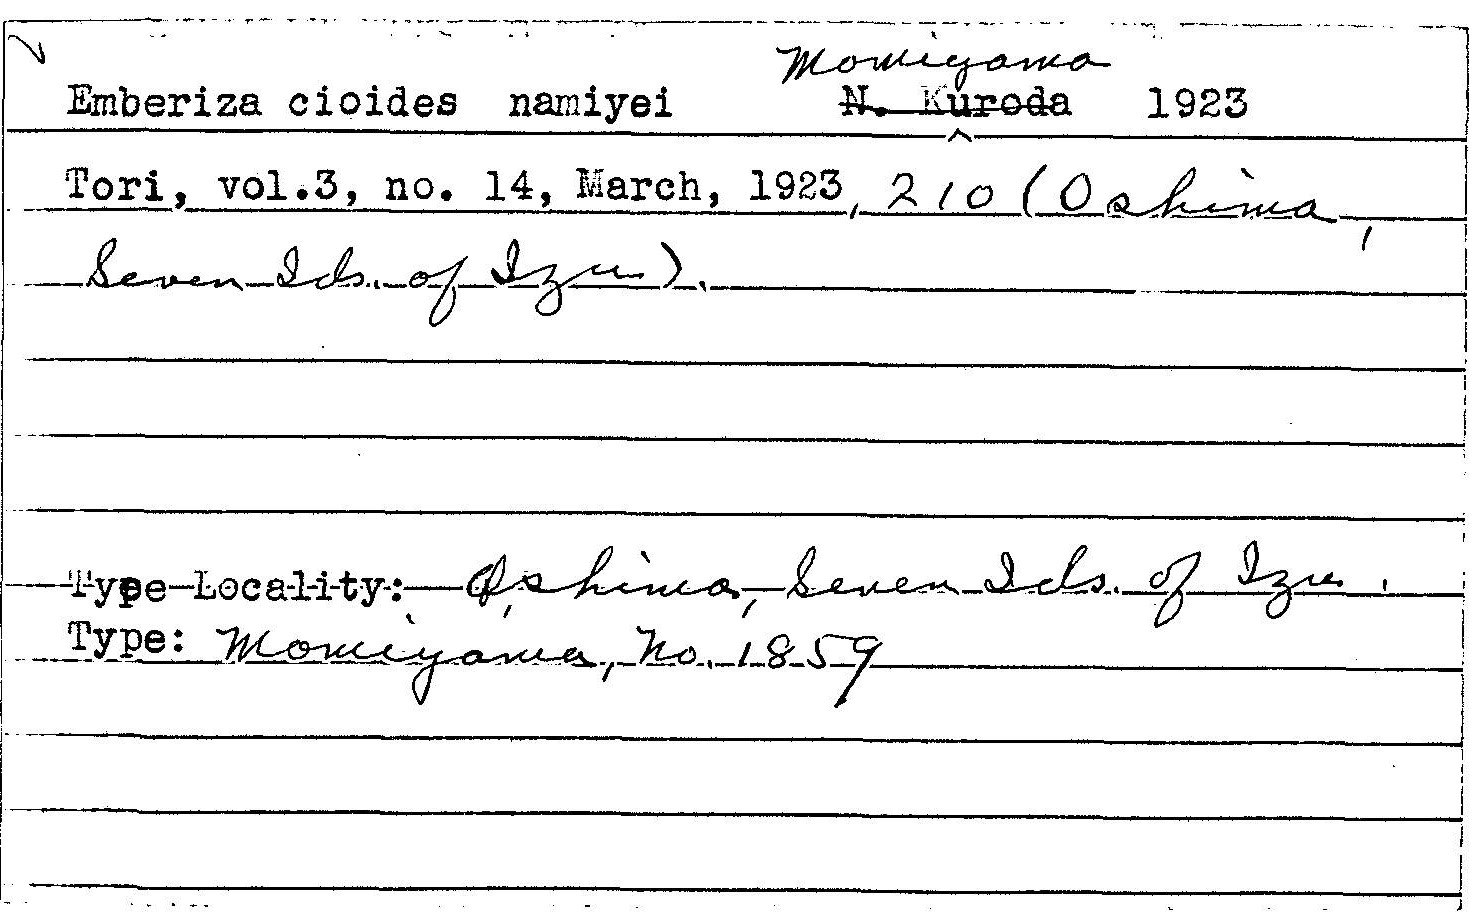 Momiyama
Emberiza cioides namiyei N. Kuroda 1923
Tori, vol.3, no. 14, March, 1923, 210 (Oshima,
Seven Ids. of Izu).
Type Locality: Oshima, Seven Ids. of Izu.
Type: Momiyama, No. 1859